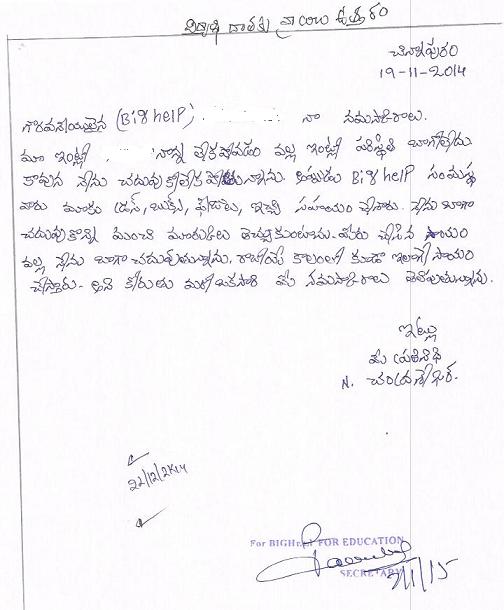 విద్యార్థి దాతకు వ్రాయు ఉత్తరం
చినాపురం
19-11-2014
గౌరవనీయులైన (Bighelp) నా నమస్కారాలు.
మా ఇంట్లో నాన్న లేకపోవడం వల్ల ఇంట్లో పరిస్థితి బాగోలేదు
కావున నేను చదువు కోలేక పోతున్నాను. Bighelp సంస్థ
వారు మాకు డ్రస్, బుక్స్, ఫీజులు, ఇచ్చి సహాయం చేసారు. నేను బాగా
చదువుకొని మంచి మార్కులు తెచ్చుకుంటాను. మీరు చేసిన సాయం
వల్ల నేను బాగా చదువుతున్నాను. రాబోయే కాలంలో కూడా ఇలాగే సాయం
చేస్తారు. అని కోరుతు మరి ఒకసారి మీ నమస్కారాలు తెలుపుతున్నాను.
ఇట్లు
మీ విద్యార్థి
N. చంద్రశేఖర్.
22/12/2k14
For BIGHELP FOR EDUCATION
SECRETARY
/1/15